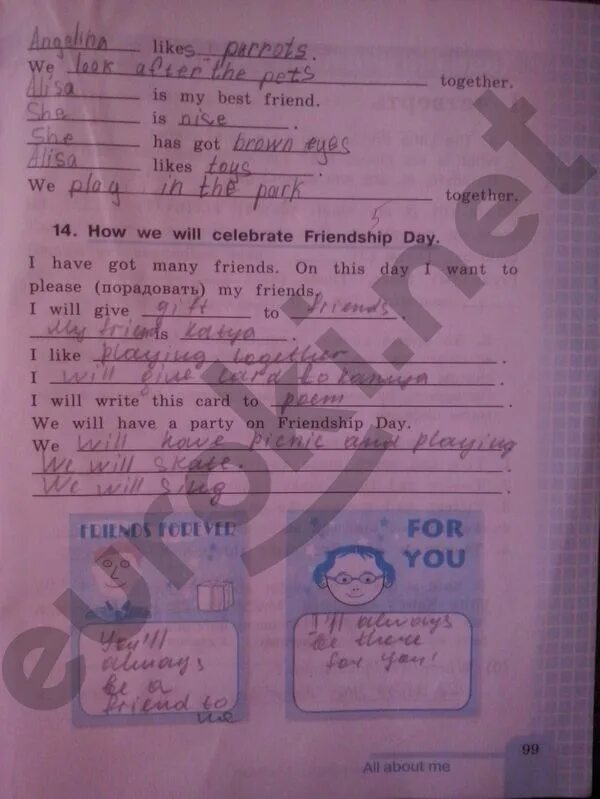 Angelina likes parrots.
We look after the pets together.
Alisa is my best friend.
She is nise.
She has got brown eyes
Alisa likes toys.
We play in the park together.
5
14. How we will celebrate Friendship Day.
I have got many friends. On this day I want to
please (порадовать) my friends.
I will give gift to friends.
My friend is Katya.
I like playing together.
I will give card to
I will write this card to poem.
We will have a party on Friendship Day.
We will have picnic and playing
We will skate.
We will sing.
FRIENDS FOREVER
You'll
always
be a
friend to
me
FOR
YOU
I'll always
be there
for you!
99
All about me
euroki.net